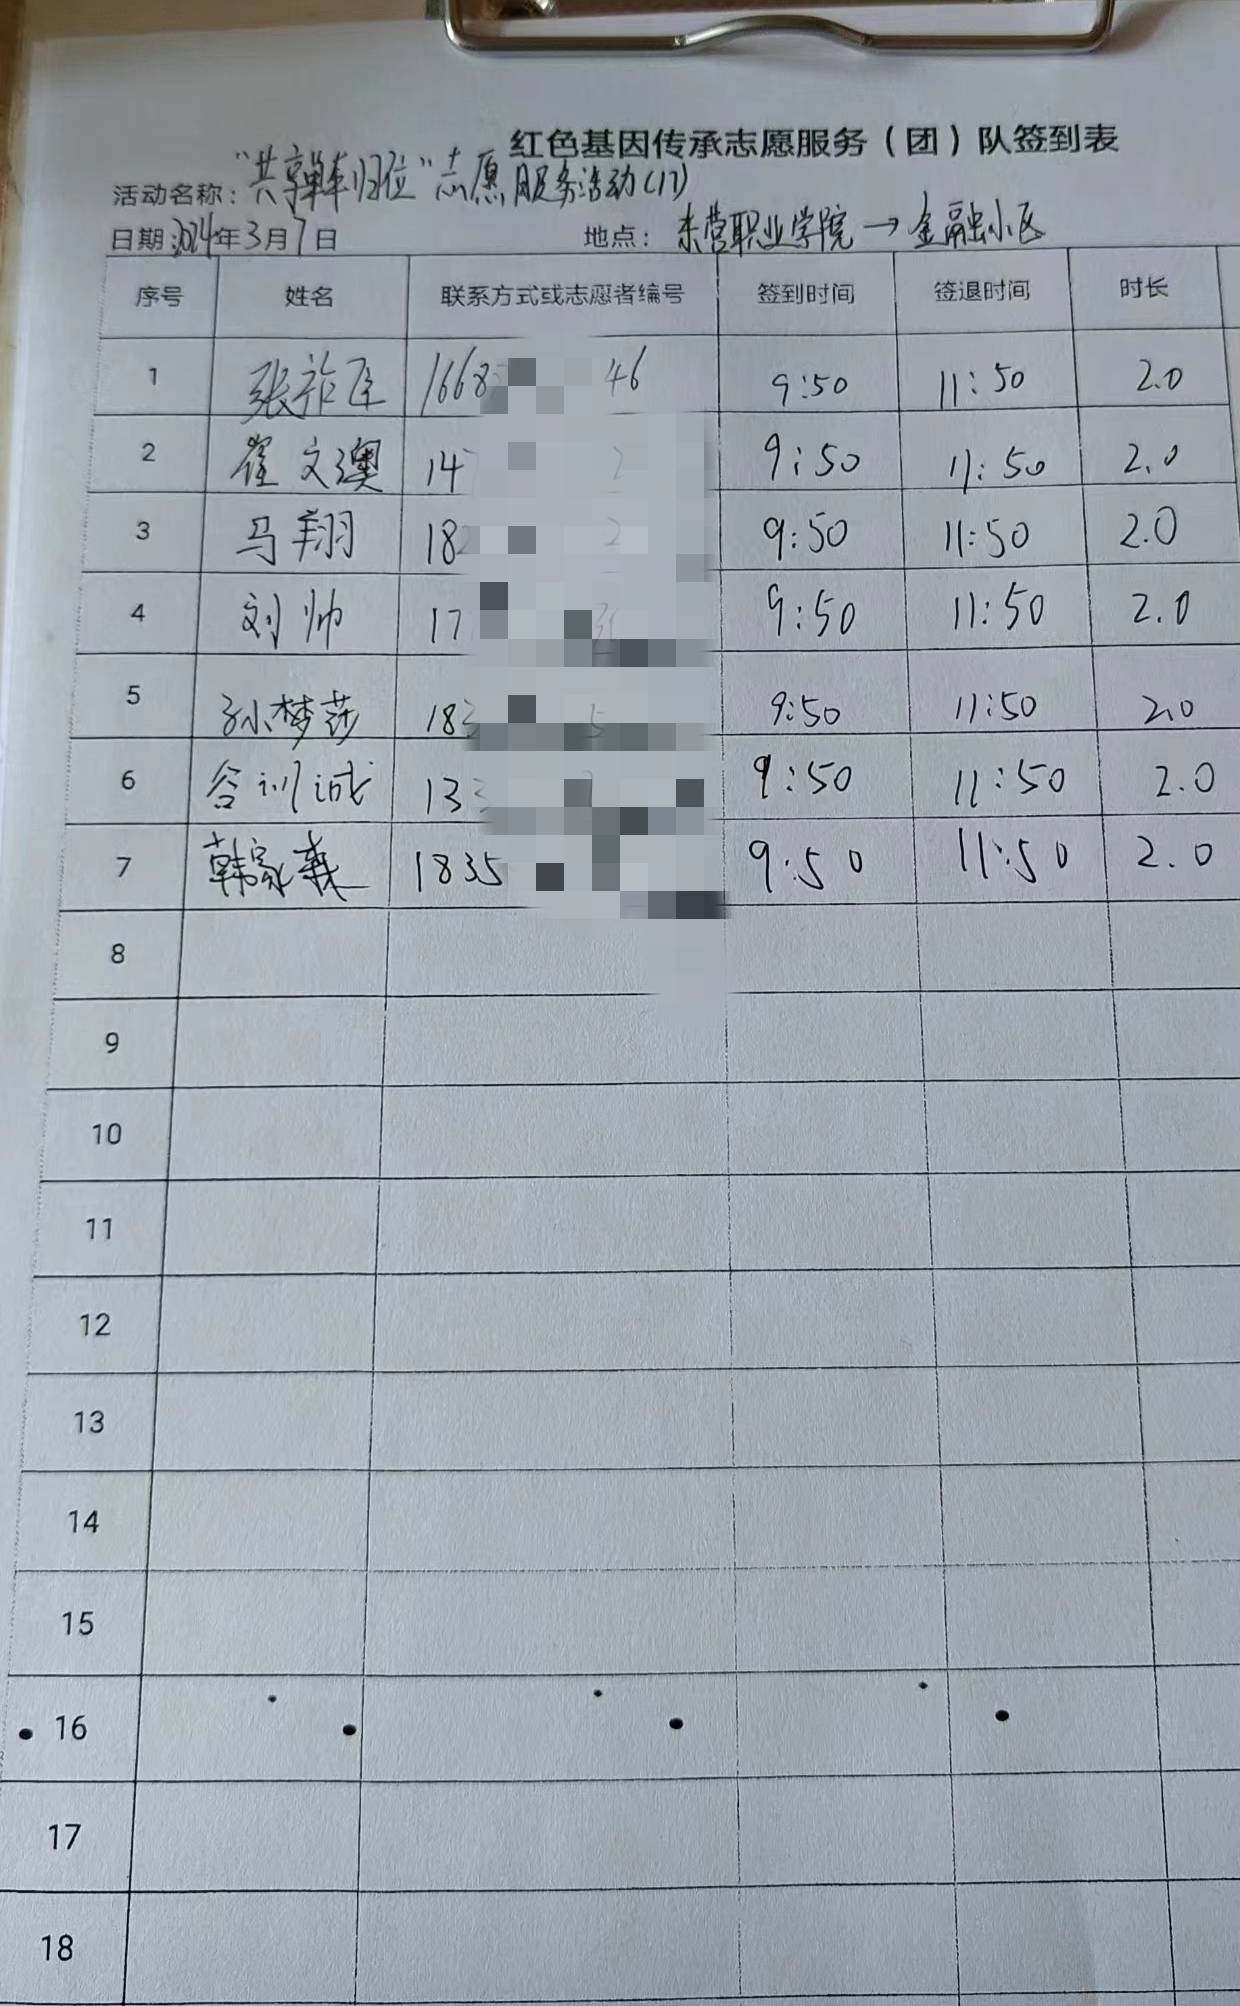 红色基因传承志愿服务（团）队签到表
活动名称："共享单车归位"志愿服务活动(17)
日期：2024年3月7日 地点：东营职业学院→金融小区
序号 姓名 联系方式或志愿者编号 签到时间 签退时间 时长
1 张 1668 46 9:50 11:50 2.0
2 崔文澳 14 2 9:50 11:50 2.0
3 马翔 18 2 9:50 11:50 2.0
4 刘帅 17 9:50 11:50 2.0
5 孙梦莎 183 5 9:50 11:50 2.0
6 训诚 13 9:50 11:50 2.0
7 韩家 1835 9:50 11:50 2.0
8
9
10
11
12
13
14
15
16
17
18